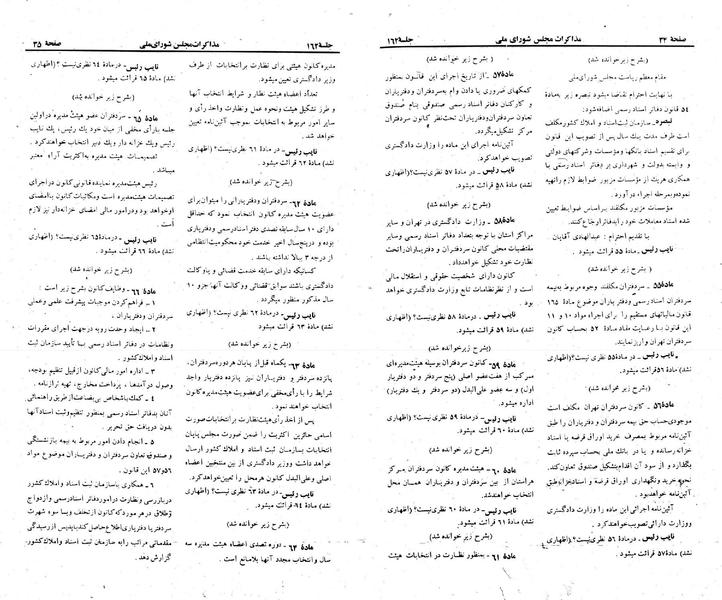 صفحهٔ ۳۴
مذاکرات مجلس شورای ملی
جلسهٔ ۱۶۲
(بشرح زیر خوانده شد)
مقام معظم ریاست مجلس شورای‌ملی
با نهایت احترام تقاضا میشود تبصره زیر به‌مادهٔ
۵۴ قانون دفاتر اسناد رسمی اضافه‌شود:
تبصره ـ سازمان ثبت‌اسناد و املاک کشور مکلف
است ظرف مدت یک سال پس از تصویب این قانون
برای تقسیم اسناد بانکها و مؤسسات و شرکتهای دولتی
و وابسته بدولت و شهرداری بر دفاتر اسناد رسمی با
همکاری هریک از مؤسسات مزبور ضوابط لازم راتهیه
نموده‌و بمرحله اجراء درآورد.
مؤسسات مزبور مکلفند براساس ضوابط تعیین
شده اسناد معاملات خود رابدفاتر ارجاع کنند.
با تقدیم احترام : عبدالهدی آقایان
نایب رئیس ـ مادهٔ ۵۵ قرائت میشود.
(بشرح زیر خوانده شد)
مادهٔ۵۵ ـ سردفتران مکلفند وجوه مربوط به‌بیمه
سردفتران اسناد رسمی و دفتر یاران موضوع مادهٔ ۱۶۵
قانون مالیاتهای مستقیم را برای اجراء مواد ۱۰ و ۱۱
این قانون با رعایت مفاد مادهٔ ۵۲ بحساب کانون
سردفتران تهران واریز نمایند.
نایب رئیس ـ در مادهٔ۵۵ نظری نیست؟(اظهاری
نشد) مادهٔ ۵۶ قرائت میشود.
(بشرح زیر خوانده شد)
مادهٔ۵۶ ـ کانون سردفتران تهران مکلف است
موجودی‌حساب حق بیمه سردفتران و دفتر یاران را طبق
آئین‌نامه مربوط بمصرف خرید اوراق قرضه یا اسناد
خزانه رسانده و یا در بانک ملی بحساب سپرده ثابت
بگذارد و از سود آن اقدام‌بتشکیل صندوق تعاون‌کند.
نحوه خرید و نگهداری اوراق قرضه و اسناد خزانه طبق
آئین‌نامه خواهد بود.
آئین‌نامه اجرائی این ماده را وزارت دادگستری
و وزارت دارائی تصویب‌خواهند کرد.
نایب رئیس ـ در مادهٔ ۵۶ نظری نیست؟ (اظهاری
نشد) مادهٔ ۵۷ قرائت میشود.
(بشرح زیر خوانده شد)
مادهٔ۵۷ ـ از تاریخ اجرای این قانون بمنظور
کمکهای ضروری یا دادن وام به‌سردفتران و دفتریاران
و کارکنان دفاتر اسناد رسمی صندوقی بنام صندوق
تعاون سردفتران و دفتریاران تحت‌نظر کانون سردفتران
مرکز تشکیل میگردد.
آئین‌نامه اجرای این ماده را وزارت دادگستری
تصویب خواهد کرد.
نایب رئیس ـ در مادهٔ ۵۷ نظری نیست؟ (اظهاری
نشد) مادهٔ ۵۸ قرائت میشود.
(بشرح زیر خوانده شد)
مادهٔ۵۸ ـ وزارت دادگستری در تهران و سایر
مراکز استان با توجه بتعداد دفاتر اسناد رسمی و سایر
مقتضیات محلی کانون سردفتران و دفتریاران راتحت
نظارت خود تشکیل خواهد داد.
کانون دارای شخصیت حقوقی و استقلال مالی
است و از نظر نظامات تابع وزارت دادگستری خواهد
بود.
نایب رئیس ـ در مادهٔ ۵۸ نظری نیست؟ (اظهاری
نشد) مادهٔ ۵۹ قرائت میشود.
(بشرح زیر خوانده شد)
مادهٔ ۵۹ ـ کانون سردفتران بوسیله هیئت‌مدیره‌ای
مرکب از هفت عضو اصلی (پنج سردفتر و دو دفتریار
اول) و سه عضو علی‌البدل (دو سردفتر و یک دفتریار)
اداره میشود.
نایب رئیس ـ در مادهٔ ۵۹ نظری نیست؟ (اظهاری
نشد) مادهٔ ۶۰ قرائت میشود.
(بشرح زیر خوانده شد)
مادهٔ ۶۰ ـ هیئت مدیره کانون سردفتران مرکز
هراستان از بین سردفتران و دفتریاران همان محل
انتخاب میشوند.
نایب رئیس ـ در مادهٔ ۶۰ نظری نیست؟ (اظهاری
نشد) مادهٔ ۶۱ قرائت میشود.
(بشرح زیر خوانده شد)
مادهٔ ۶۱ ـ بمنظور نظارت در انتخابات هیئت
جلسهٔ ۱۶۲
مذاکرات مجلس شورای‌ملی
صفحهٔ ۳۵
مدیره کانون هیئتی برای نظارت بر انتخابات از طرف
وزیر دادگستری تعیین میشود.
تعداد اعضاء هیئت نظار و شرایط انتخاب آنها
و طرز تشکیل هیئت و نحوه عمل و نظارت واخذ رأی و
سایر امور مربوط به انتخابات بموجب آئین‌نامه تعیین
خواهد شد.
نایب رئیس ـ در مادهٔ ۶۱ نظری نیست؟ (اظهاری
نشد) مادهٔ ۶۲ قرائت میشود.
(بشرح زیر خوانده شد)
مادهٔ ۶۲ ـ سردفتران و دفتریارانی را میتوان برای
عضویت هیئت مدیره کانون انتخاب نمود که حداقل
دارای ۱۰ سال سابقه تصدی دفتر اسناد رسمی و دفتریاری
بوده و در پنج سال اخیر خدمت خود محکومیت انتظامی
از درجه ۳ ببالا نداشته باشند.
کسانیکه دارای سابقه خدمت قضائی و یا وکالت
دادگستری باشند سوابق قضائی و وکالت آنها جزو ۱۰
سال مذکور منظور میگردد.
نایب رئیس ـ در مادهٔ ۶۲ نظری نیست؟ (اظهاری
نشد) مادهٔ ۶۳ قرائت میشود.
(بشرح زیر خوانده شد)
مادهٔ ۶۳ ـ یکماه قبل از پایان هر دوره سردفتران،
پانزده سردفتر و دفتریاران نیز پانزده دفتریار واجد
شرایط را با رأی مخفی برای عضویت هیئت مدیره کانون
انتخاب خواهند نمود.
پس از اخذ رأی هیئت نظارت بر انتخابات صورت
اسامی حائزین اکثریت را ضمن صورت مجلس پایان
انتخابات بسازمان ثبت اسناد و املاک کشور ارسال
خواهد داشت و وزیر دادگستری از بین منتخبین اعضاء
اصلی و علی‌البدل کانون هر محل را تعیین خواهد کرد.
نایب رئیس ـ در مادهٔ ۶۳ نظری نیست؟ (اظهاری
نشد) مادهٔ ۶۴ قرائت میشود.
(بشرح زیر خوانده شد)
مادهٔ ۶۴ ـ دوره تصدی اعضاء هیئت مدیره سه
سال و انتخاب مجدد آنها بلامانع است.
نایب رئیس ـ در مادهٔ ۶۴ نظری نیست؟ (اظهاری
نشد) مادهٔ ۶۵ قرائت میشود.
(بشرح زیر خوانده شد)
مادهٔ ۶۵ ـ سردفتران عضو هیئت مدیره در اولین
جلسه با رأی مخفی از میان خود یک رئیس، یک نایب
رئیس ویک خزانه دار و یک دبیر انتخاب خواهند کرد.
تصمیمات هیئت مدیره به‌اکثریت آراء معتبر
میباشد.
رئیس هیئت‌مدیره نماینده قانونی کانون در اجرای
تصمیمات هیئت‌مدیره است و مکاتبات کانون با امضای
او خواهد بود و در امور مالی امضای خزانه‌دار نیز لازم
است.
نایب رئیس ـ در مادهٔ ۶۵ نظری نیست؟ (اظهاری
نشد) مادهٔ ۶۶ قرائت میشود.
(بشرح زیر خوانده شد)
مادهٔ ۶۶ ـ وظایف کانون بشرح زیر است:
۱ ـ فراهم کردن موجبات پیشرفت علمی و عملی
سردفتران و دفتریاران.
۲ ـ ایجاد وحدت رویه در جهت اجرای مقررات
و نظامات در دفاتر اسناد رسمی با تأیید سازمان ثبت
اسناد و املاک کشور.
۳ ـ اداره امور مالی کانون از قبیل تنظیم بودجه،
وصول درآمدها، پرداخت مخارج، تهیه ترازنامه.
۴ ـ کمک باشخاص بی‌بضاعت از طریق راهنمائی
آنان بدفاتر اسناد رسمی بمنظور تنظیم وثبت اسناد آنها
بدون دریافت حق تحریر.
۵ ـ انجام دادن امور مربوط به بیمه بازنشستگی
و صندوق تعاون سردفتران و دفتریاران موضوع مواد
۵۶و ۵۷ این قانون.
۶ ـ همکاری با سازمان ثبت اسناد و املاک کشور
در بازرسی و نظارت در امور دفاتر اسناد رسمی و ازدواج
و طلاق و در هر مورد که کانون از تخلف و یا سوء شهرت
سردفتر یا دفتریاری اطلاع حاصل کند باید پس از رسیدگی
مقدماتی مراتب را به سازمان ثبت اسناد و املاک کشور
گزارش دهد.